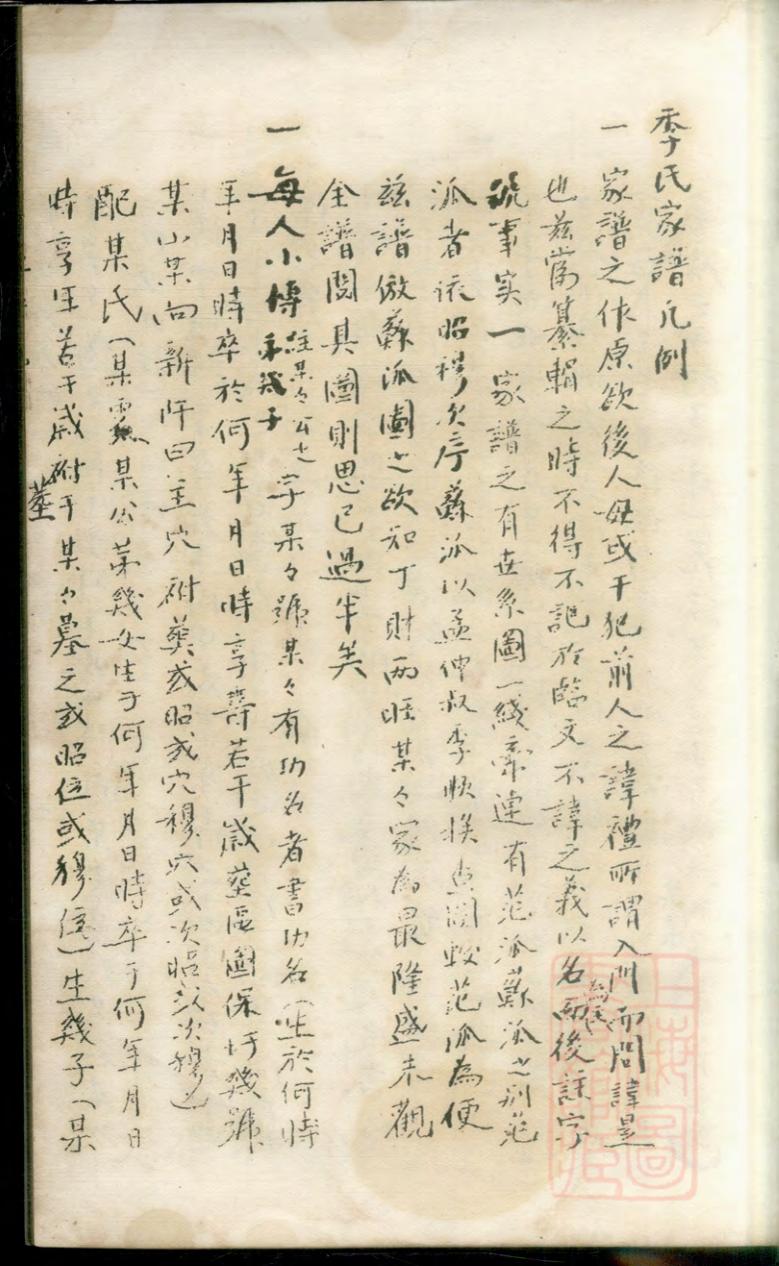 季氏家譜凡例
一 家譜之作原欲後人毋或干犯前人之諱禮所謂入門而問諱是
也茲當纂輯之時不得不託於臨文不諱之義以名而後註字
號事实一家譜之有世系圖一綫牽連有范派蘇派之別范
派者依昭穆次序蘇派以孟仲叔季順挨查閱較范派為便
茲譜倣蘇派圖之欲知丁財兩旺某々家為最隆盛未觀
全譜閱其圖則思已過半矣
一 每人小傳註某々公之第幾子字某々號某々有功名者書功名(生於何時
年月日時卒於何年月日時享壽若干歲塟區圖保圩幾號
某山某向新阡曰主穴祔葵或昭或穴穆穴或次昭或次穆)
配某氏(某處某公第幾女生于何年月日時卒于何年月日
時享年若干歲祔塟于某々墓之或昭位或穆位)生幾子(某